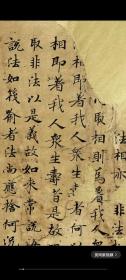 法相亦非法
心取相則爲著我人
相即著我人衆生壽者何以
相即著我人衆生壽者是故
取非法以是義故如来常說
說法如筏喻者法尚應捨何況